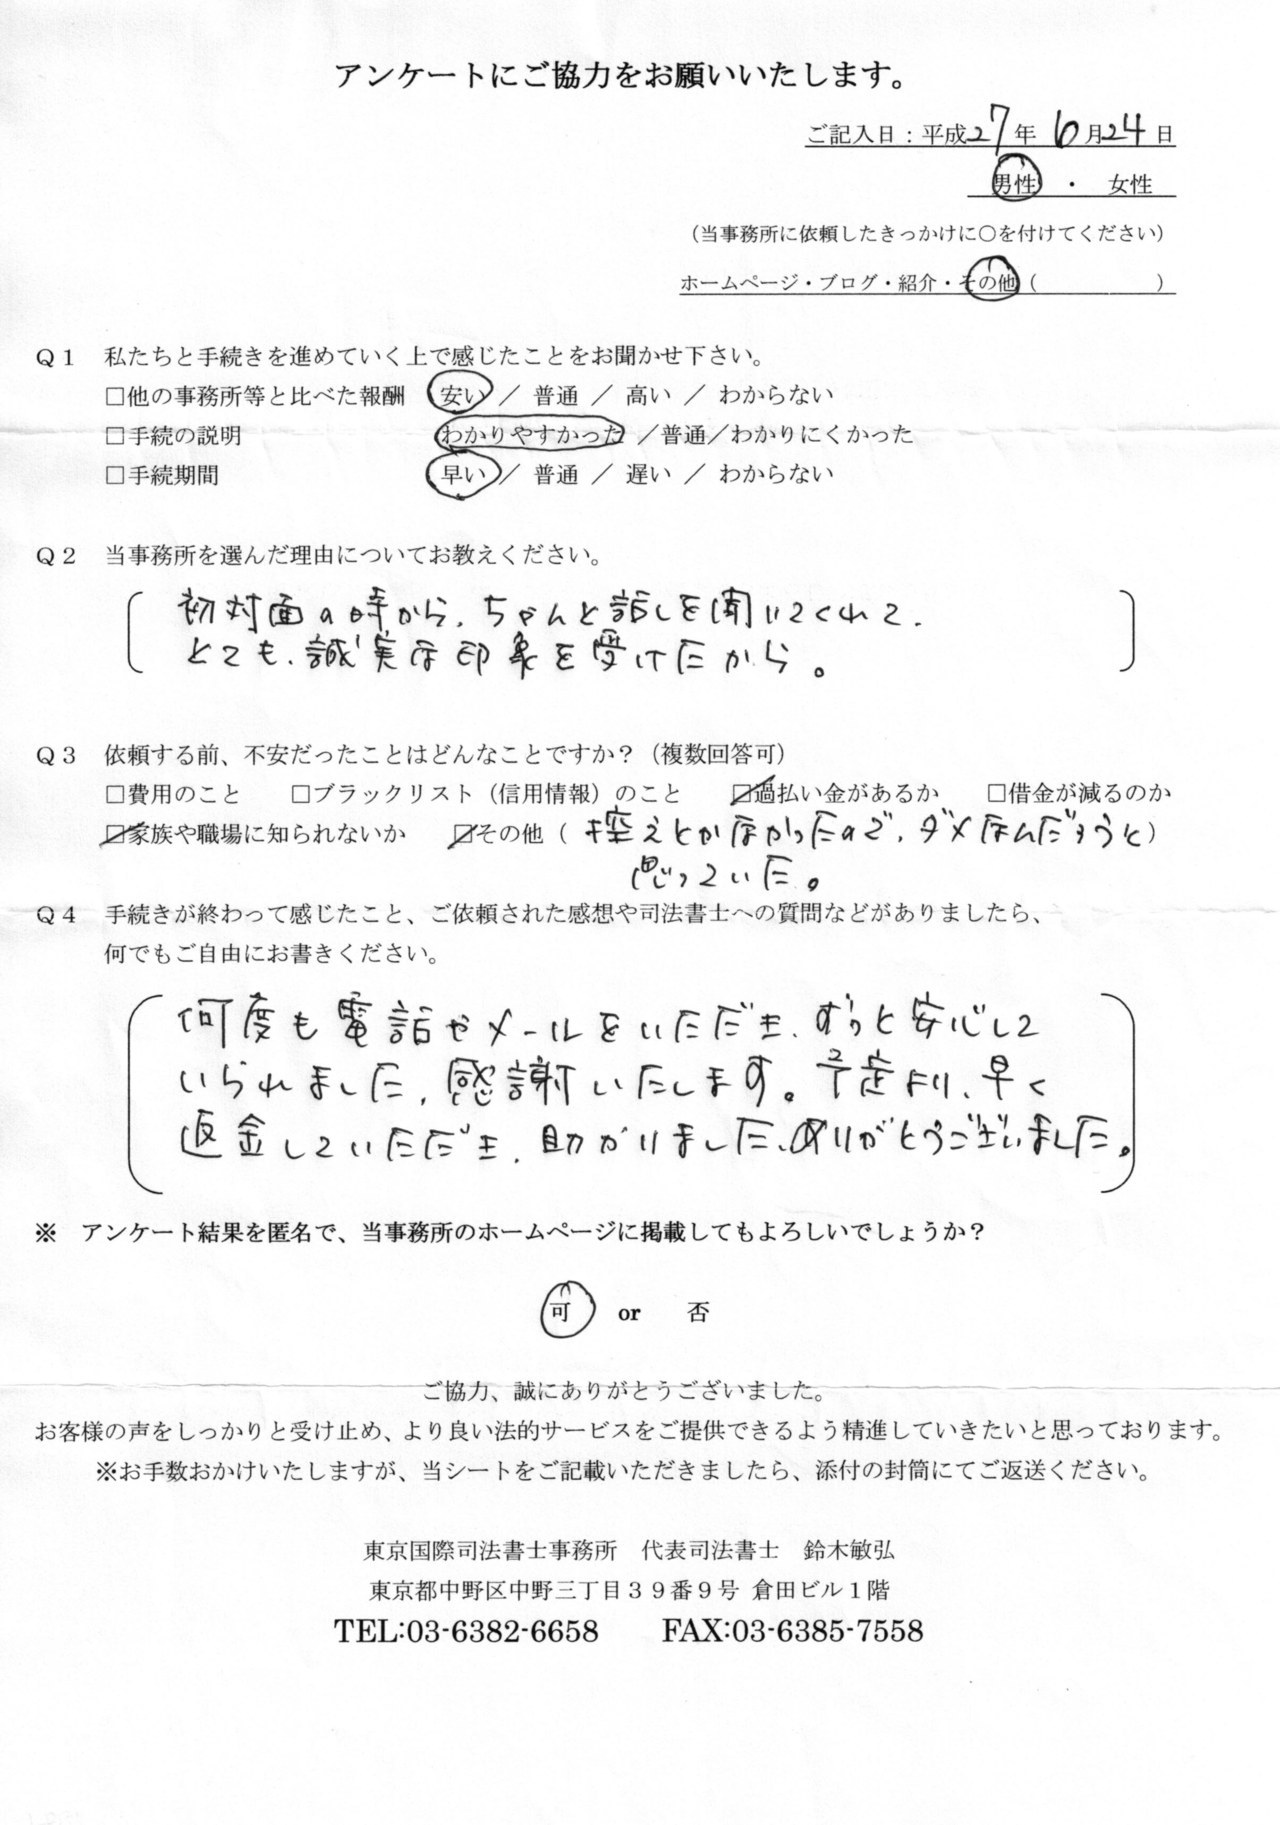 アンケートにご協力をお願いいたします。
ご記入日：平成27年 6月24日
男性 ・ 女性
（当事務所に依頼したきっかけに○を付けてください）
ホームページ・ブログ・紹介・その他（　　　　　）
Q１ 私たちと手続きを進めていく上で感じたことをお聞かせ下さい。
□他の事務所等と比べた報酬 安い ／ 普通 ／ 高い ／ わからない
□手続の説明 わかりやすかった ／普通／わかりにくかった
□手続期間 早い ／ 普通 ／ 遅い ／ わからない
Q２ 当事務所を選んだ理由についてお教えください。
初対面の時から、ちゃんと話しを聞いてくれて、
とても、誠実な印象を受けたから。
Q３ 依頼する前、不安だったことはどんなことですか？（複数回答可）
□費用のこと □ブラックリスト（信用情報）のこと ☑過払い金があるか □借金が減るのか
☑家族や職場に知られないか ☑その他（ 控えとかなかったので、ダメなんだろうと）
思っていた。
Q４ 手続きが終わって感じたこと、ご依頼された感想や司法書士への質問などがありましたら、
何でもご自由にお書きください。
何度も電話やメールをいただき、ずっと安心して
いられました、感謝いたします。予定より、早く
返金していただき、助かりました、ありがとうございました。
※ アンケート結果を匿名で、当事務所のホームページに掲載してもよろしいでしょうか？
可 or 否
ご協力、誠にありがとうございました。
お客様の声をしっかりと受け止め、より良い法的サービスをご提供できるよう精進していきたいと思っております。
※お手数おかけいたしますが、当シートをご記載いただきましたら、添付の封筒にてご返送ください。
東京国際司法書士事務所 代表司法書士 鈴木敏弘
東京都中野区中野三丁目３９番９号 倉田ビル１階
TEL:03-6382-6658 FAX:03-6385-7558